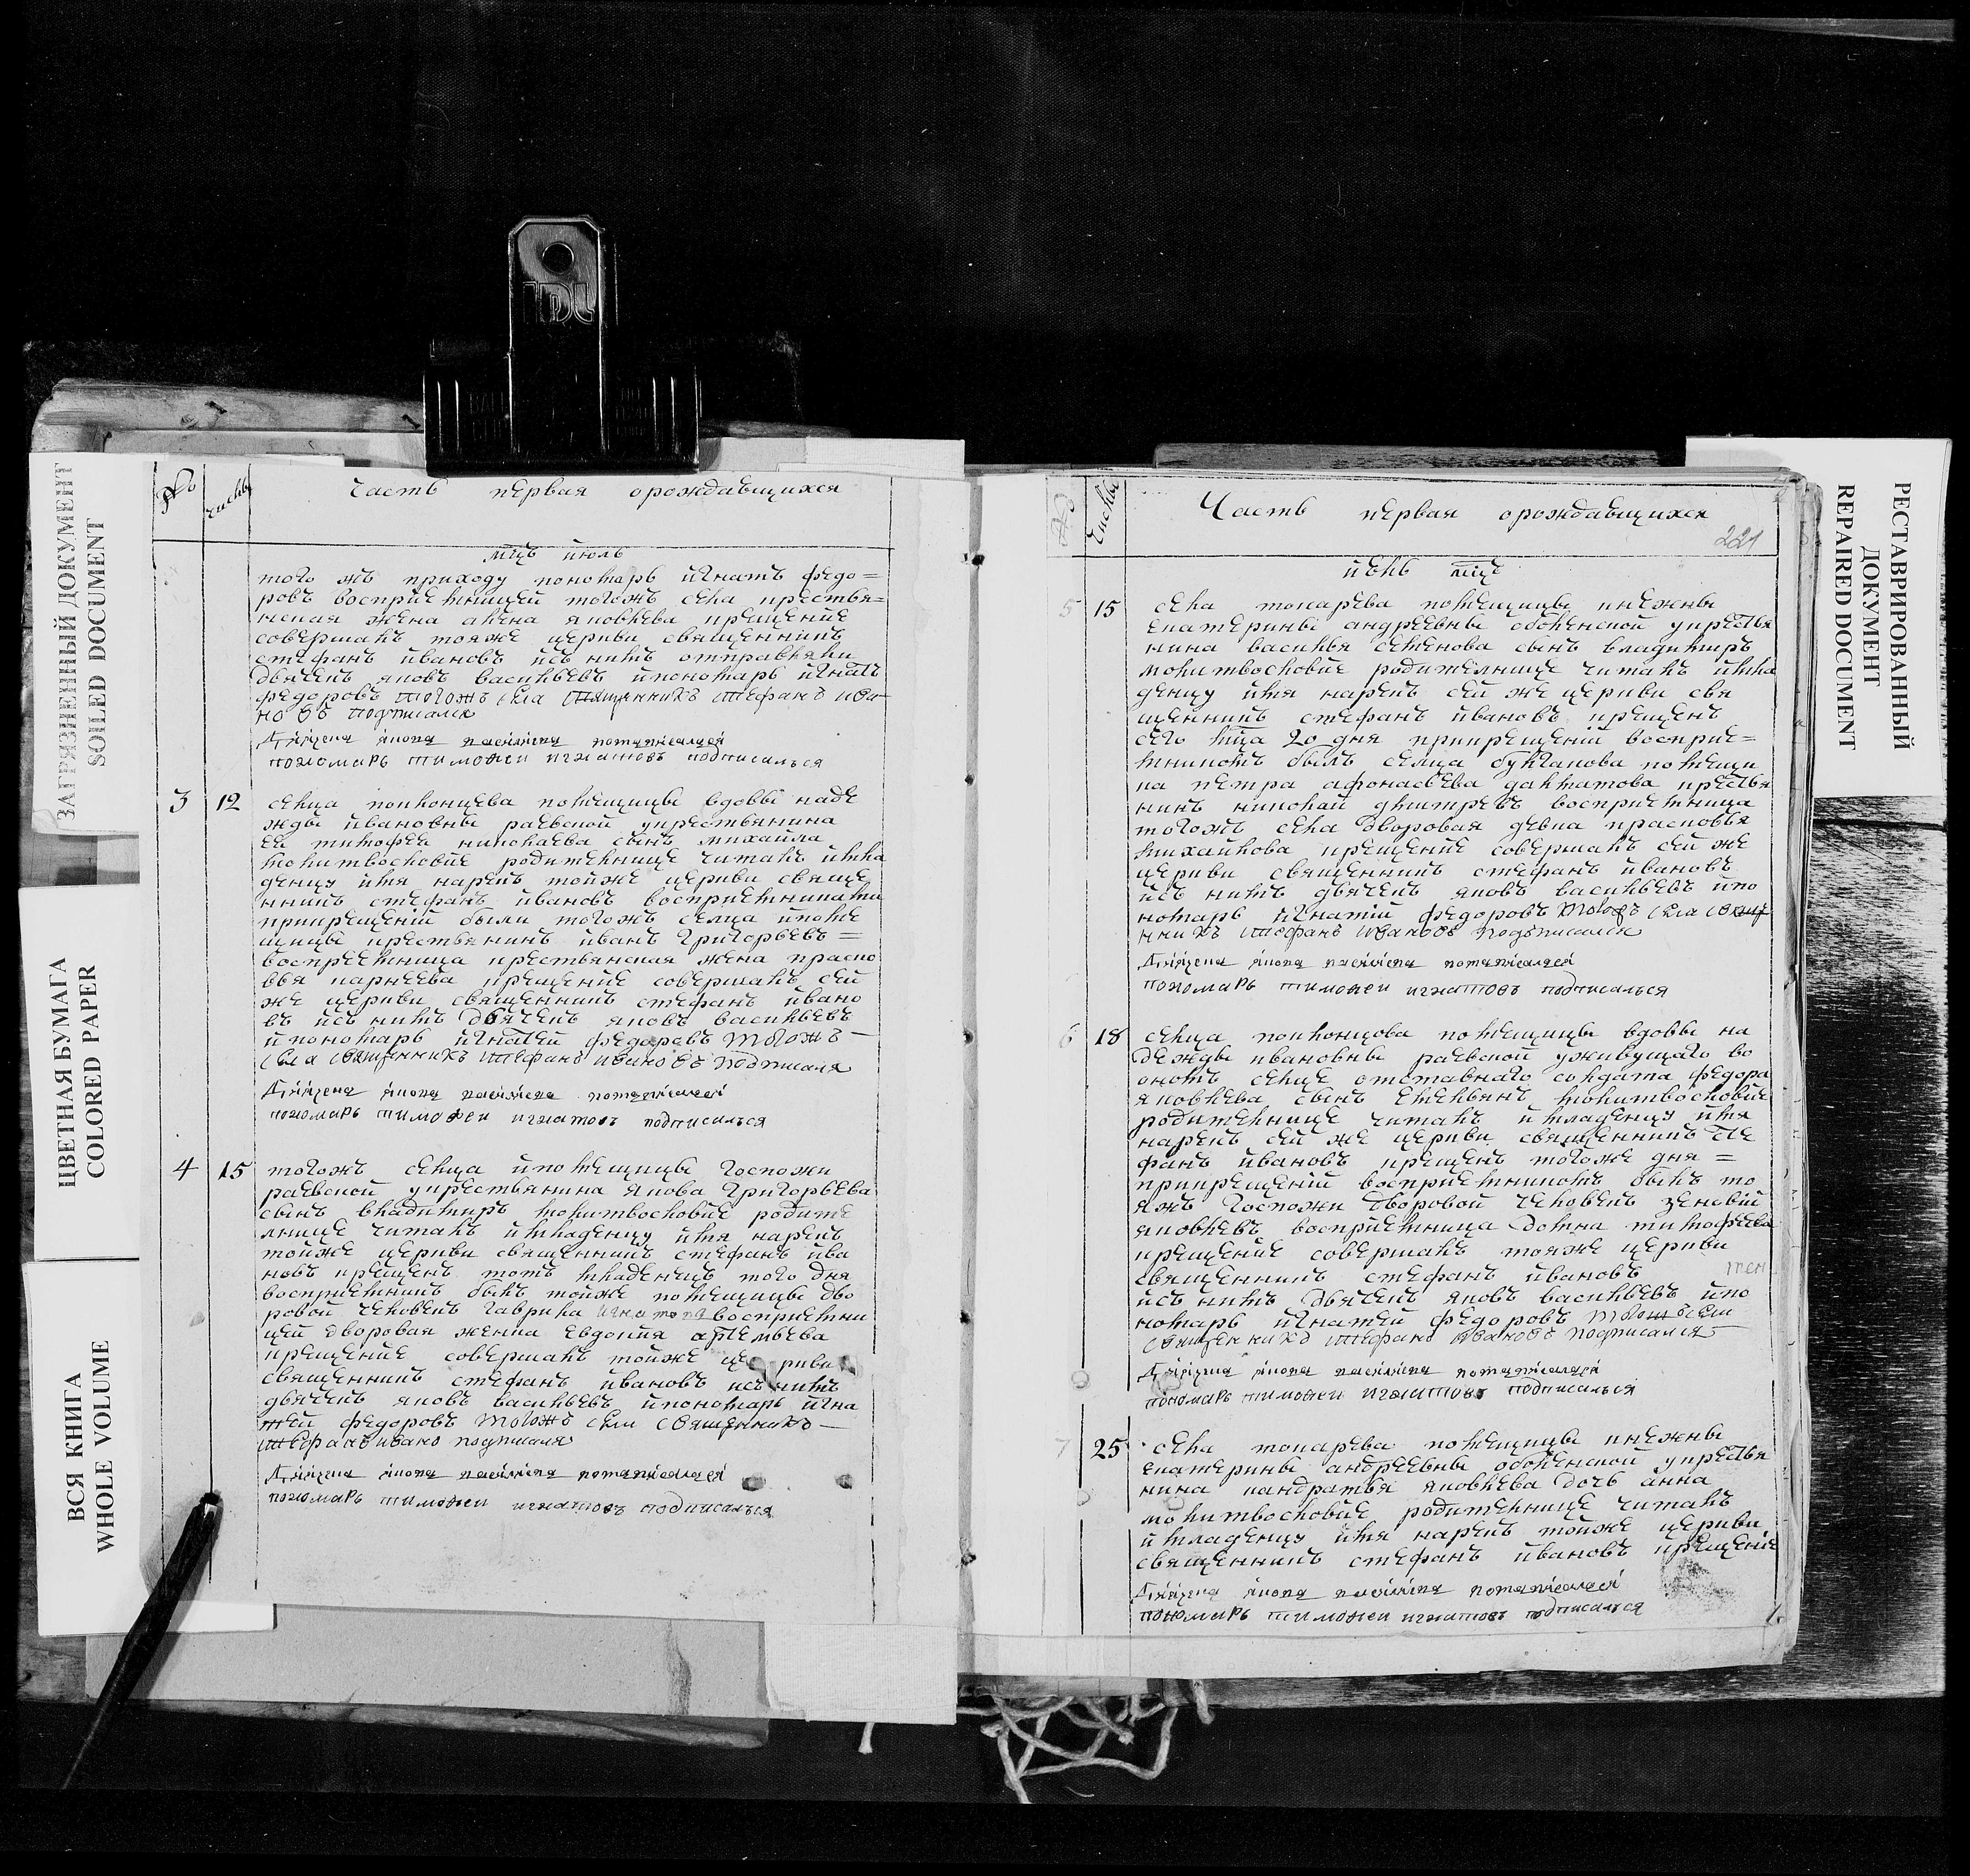 ЗАГРЯЗНЕННЫЙ ДОКУМЕНТ
SOILED DOCUMENT
ЦВЕТНАЯ БУМАГА
COLORED PAPER
ВСЯ КНИГА
WHOLE VOLUME
№ числы
часть первая ораждавщихся
мцъ июль
того жъ приходу пономарь игнатъ федо=
ровъ восприемницей тогожъ села крестья=
нская жена алена яковлева крещение
совершалъ тояже церкви священникъ
стефанъ ивановъ исъ нимъ отправляли
дьячекъ яковъ васильевъ ипономарь игнатъ
федоровъ тогожъ села священникъ стефанъ ива
новъ подписался
пономарь тимофеи игнатовъ подписалъся
3 12
селца поплонцева помещицы вдовы наде
жды ивановны раевской укрестьянина
ея тимофея николаева сынъ михайла
молитвословие родителнице читалъ имла
денцу имя нарекъ тойже церкви свяще
нникъ стефанъ ивановъ восприемниками
прикрещении были тогожъ селца ипоме
щицы крестьянинъ иванъ григорьевъ=
восприемница крестьянская жена праско
вья карнеева крещение совершалъ сей
же церкви священникъ стефанъ ивано
въ исъ нимъ дьячекъ яковъ васильевъ
ипономарь игнатей федоровъ тогожъ
села священникъ стефанъ ивановъ подписался
пономарь тимофеи игнатовъ подписалъся
4 15
тогожъ селца ипомещицы госпожи
раевской укрестьянина якова григорьева
сынъ владимиръ молитвословие родите
лнице читалъ имладенцу имя нарекъ
тойже церкви священникъ стефанъ ива
новъ крещенъ тотъ младенецъ того дня
восприемникъ былъ тойже помещицы дво
ровой человекъ гаврила игнатовъ восприемни
цей дворовая женка евдокия артемьева
крещение совершалъ тойже церкви
священникъ стефанъ ивановъ исъ нимъ
дьячекъ яковъ васильевъ ипономарь игна
тей федоровъ тогожъ села священникъ
стефанъ ивано подписался
пономарь тимофеи игнатовъ подписалъся
числы
Часть первая ораждавщихся
221
июль мцъ
5 15
села токарева помещицы княжны
екатерины андреевны оболенской укрестья
нина василья семенова сынъ владимиръ
молитвословие родителнице читалъ имла
денцу имя нарекъ сей же церкви свя
щенникъ стефанъ ивановъ крещенъ
сего мца 20 дня прикрещении восприе=
мникомъ былъ селца булгакова помещи
ка петра афонасьева далматова крестья
нинъ николай дмитревъ восприемница
тогожъ села дворовая девка прасковья
михайлова крещение совершалъ сей же
церкви священникъ стефанъ ивановъ
исъ нимъ дьячекъ яковъ васильевъ ипо
номарь игнатий федоровъ тогожъ села свяще
нникъ стефанъ ивановъ подписался
пономарь тимофеи игнатовъ подписалъся
6 18
селца поплонцова помещицы вдовы на
дежды ивановны раевской уживущаго во
ономъ селце отставнаго солдата федора
яковлева сынъ емельянъ молитвословие
родителнице читалъ имладенцу имя
нарекъ сей же церкви священникъ сте
фанъ ивановъ крещенъ тогоже дня =
прикрещении восприемникомъ былъ то
яжъ госпожи дворовой человекъ зеновий
яковлевъ восприемница домна тимофеева
крещение совершалъ тояже церкви
священникъ стефанъ ивановъ
исъ нимъ дьячекъ яковъ васильевъ ипо
номарь игнатей федоровъ тогожъ села
священникъ стефанъ ивановъ подписался
пономарь тимофеи игнатовъ подписалъся
7 25
села токарева помещицы княжны
екатерины андреевны оболенской укрестья
нина кандратья яковлева дочь анна
молитвословие родителнице читалъ
имладенцу имя нарекъ тойже церкви
священникъ стефанъ ивановъ крещение
пономарь тимофеи игнатовъ подписалъся
РЕСТАВРИРОВАННЫЙ
ДОКУМЕНТ
REPAIRED DOCUMENT